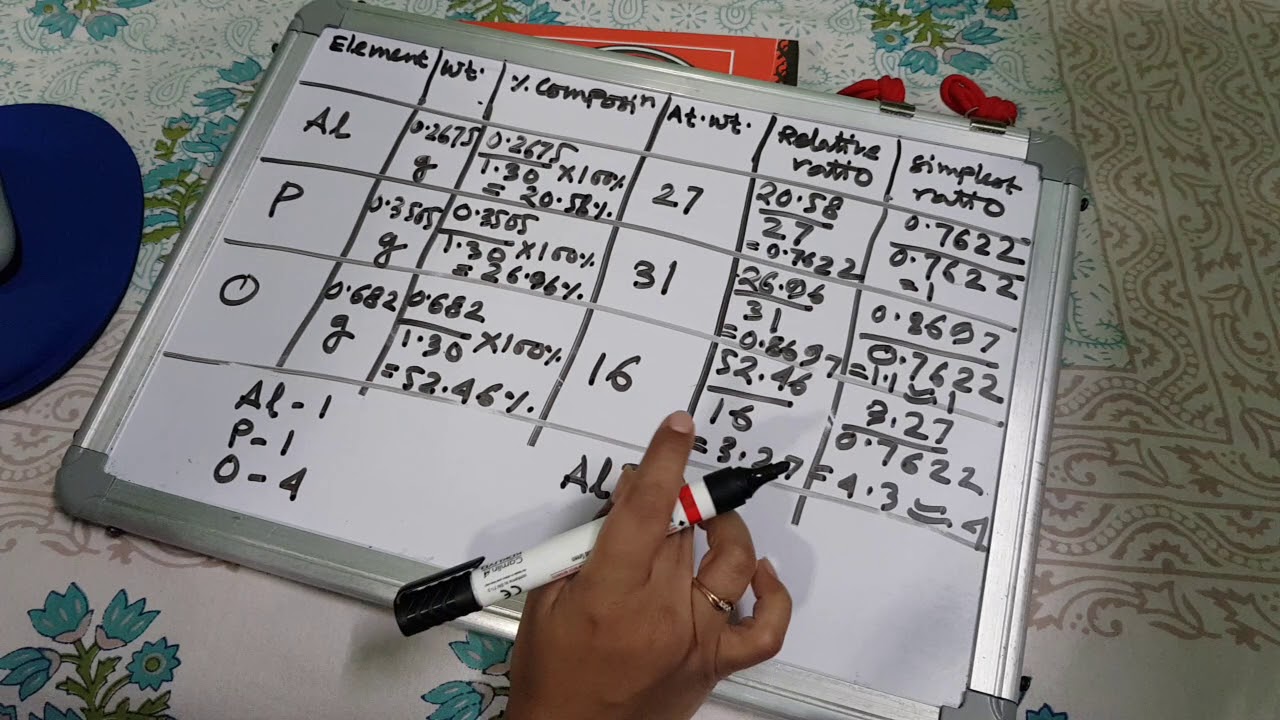 Element Wt. % Composin At. wt. Relative ratio Simplest ratio
Al 0.2675 g 0.2675 / 1.30 × 100% = 20.58% 27 20.58 / 27 = 0.7622 0.7622 / 0.7622 = 1
P 0.3505 g 0.3505 / 1.30 × 100% = 26.96% 31 26.96 / 31 = 0.8697 0.8697 / 0.7622 = 1.1 ≃ 1
O 0.682 g 0.682 / 1.30 × 100% = 52.46% 16 52.46 / 16 = 3.27 3.27 / 0.7622 = 4.3 ≃ 4
Al - 1
P - 1
O - 4
Al
Camlin